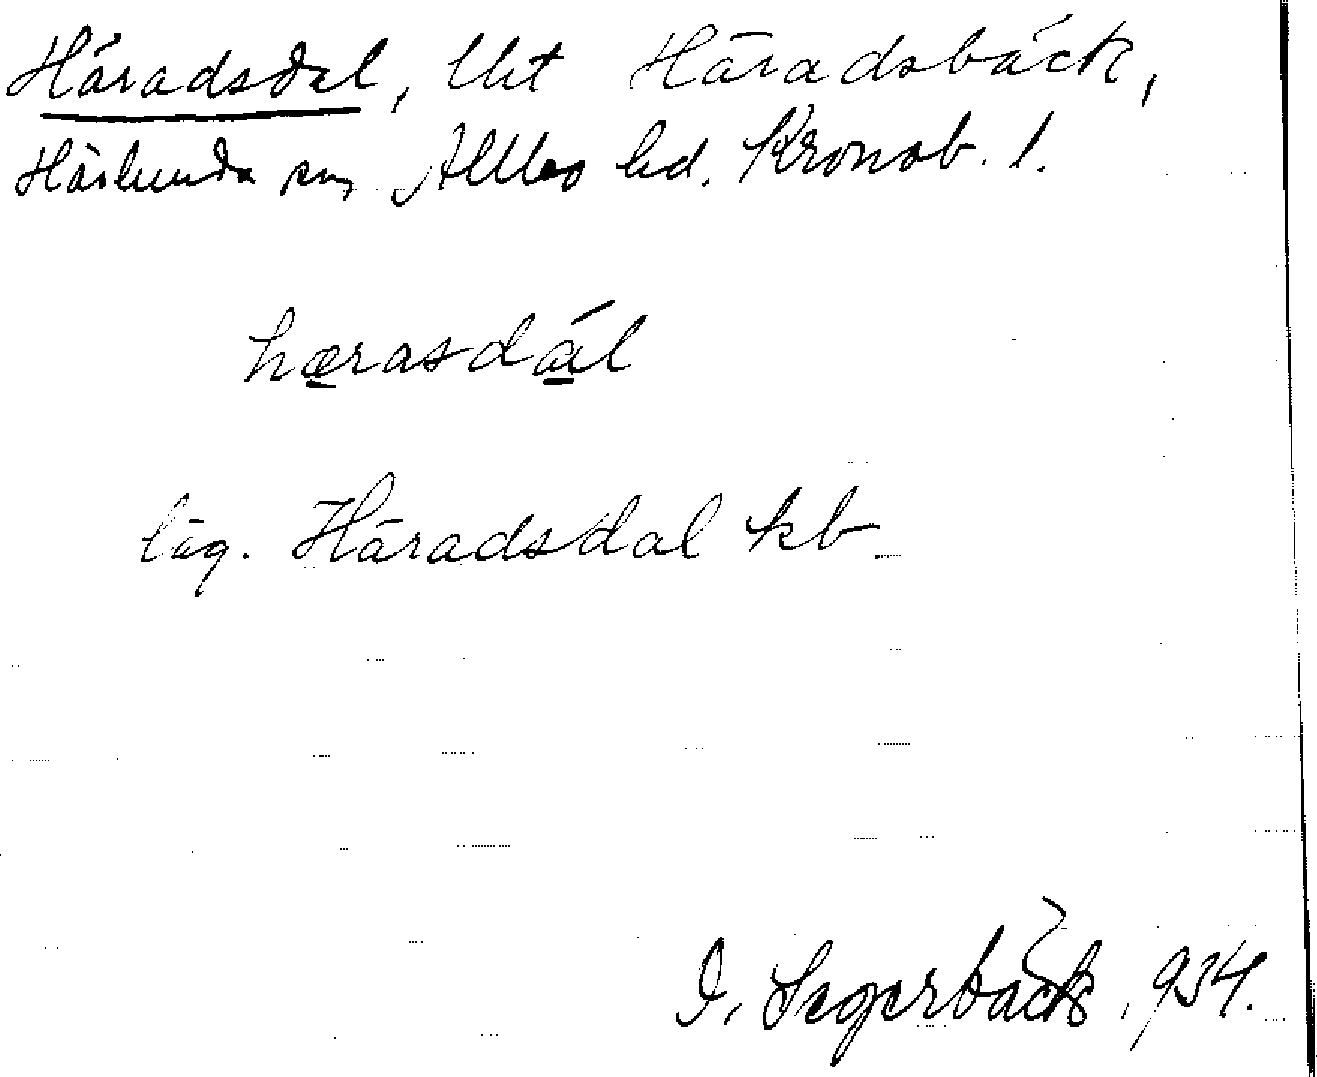 Häradsdal, lht Häradsbäck,
Härlunda sn, Allbo hd. Kronob. l.
hærasdál
läg. Häradsdal kb
I. Segerbäck, 934.